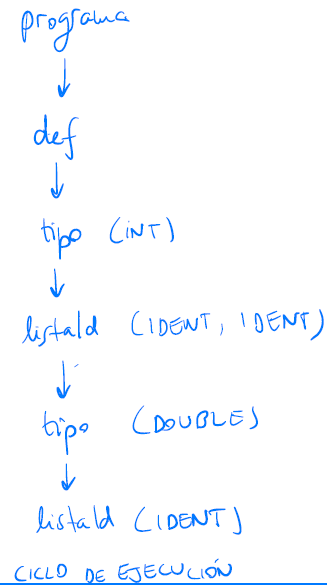 programa
def
tipo (INT)
listaId (IDENT, IDENT)
tipo (DOUBLE)
listaId (IDENT)
CICLO DE EJECUCIÓN